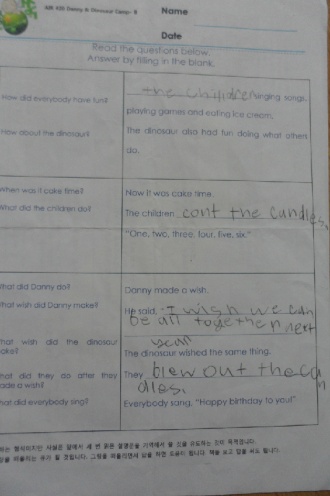 Danny & Dinosaur Camp- 8
Name
Date
Read the questions below.
Answer by filling in the blank.
How did everybody have fun?
the children singing songs,
playing games and eating ice cream.
How about the dinosaur?
The dinosaur also had fun doing what others
do.
When was it cake time?
Now it was cake time.
What did the children do?
The children cont the candles.
"One, two, three, four, five, six."
hat did Danny do?
Danny made a wish.
hat wish did Danny make?
He said, "I wish we can
be all together next
year
hat wish did the dinosaur
ake?
The dinosaur wished the same thing.
hat did they do after they
ade a wish?
They blew out the can
dles.
hat did everybody sing?
Everybody sang, "Happy birthday to you!"